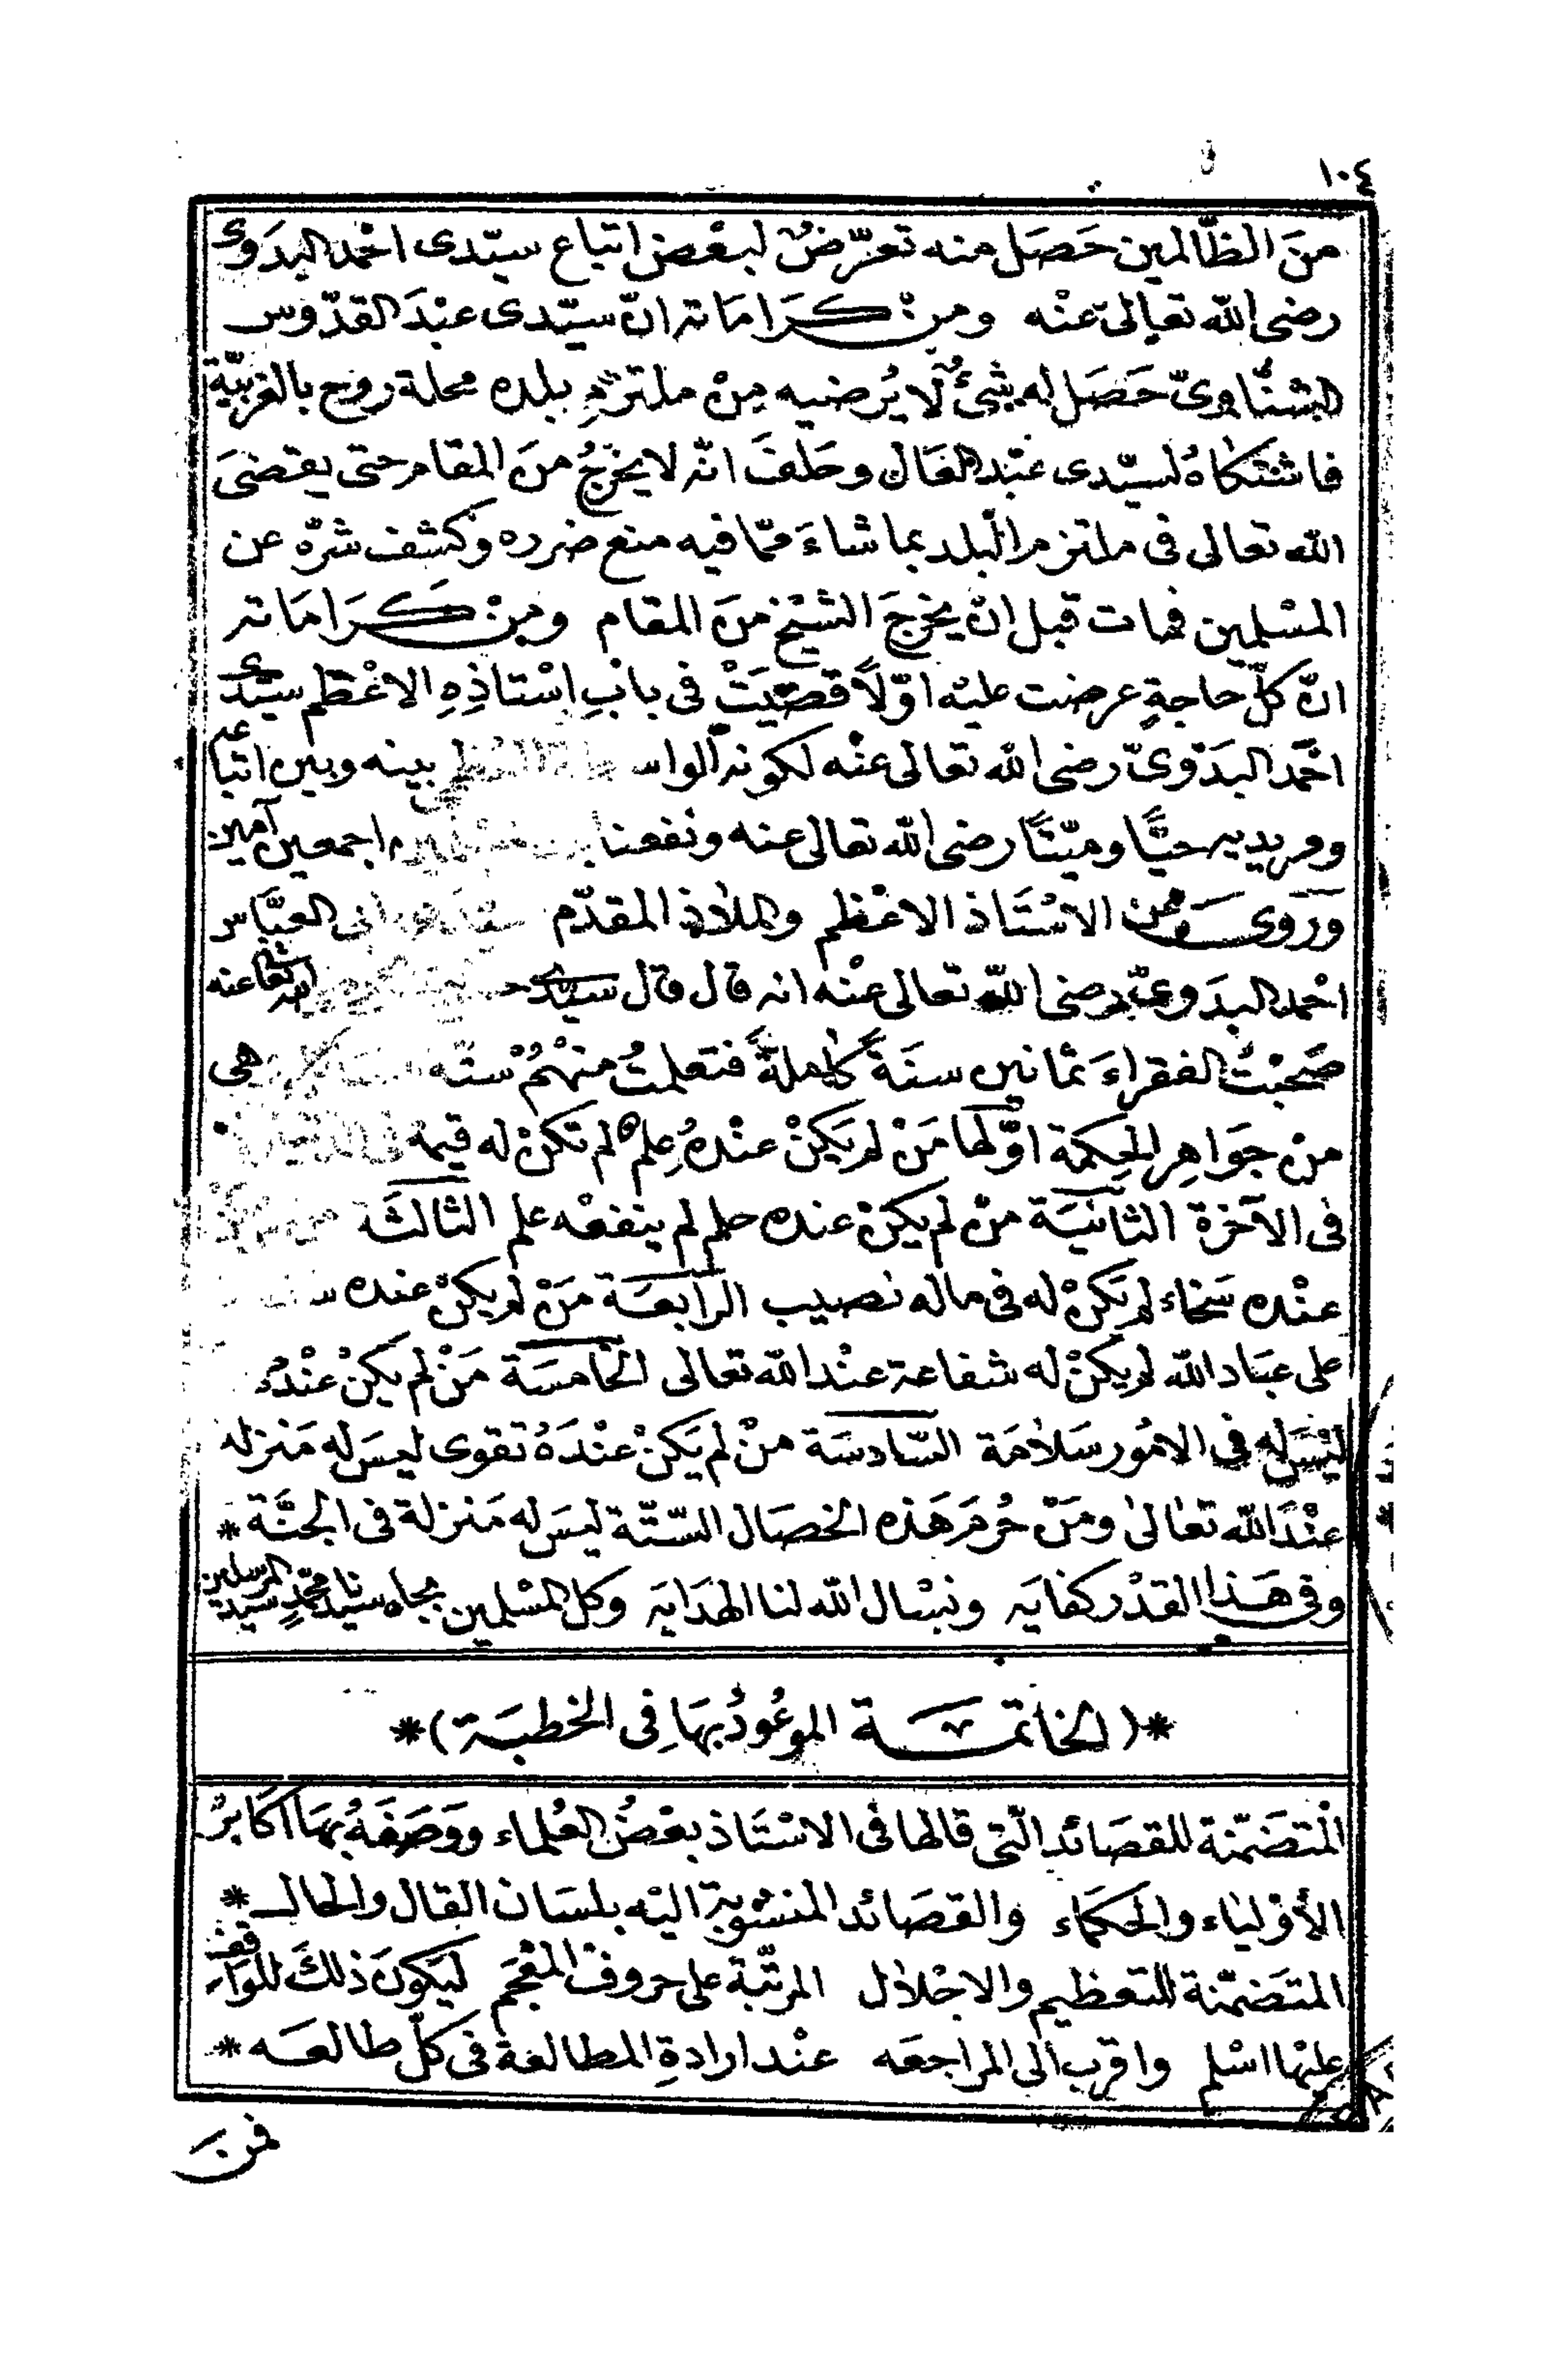 ١٠٤
منَ الظّالمين حَصَل منه تعرّضٌ لبعْض اتباع سيّدى احْمد البدَوى
رضى الله تعالى عنْه ومنْ كَرَامَاته انّ سيّدى عبْدَ القدّوس
الشنّاوىّ حَصَل له شئٌ لَا يُرضيه مِنْ ملتزمِ بلده محلة روح بالغربيّة
فاشتكاهُ لسيّدى عبْد العَال وحَلفَ انّه لا يخرجُ منَ المقام حتى يقضىَ
الله تعالى فى ملتزم البلد بما شاءَ ممّا فيه منع ضرره وكشف شرّه عن
المسْلمين فمات قبل انْ يخرجَ الشيْخ منَ المقام ومنْ كَرَامَاته
انّ كلّ حاجةٍ عرضت عليْه اوّلًا قضيَتْ فى بابِ اسْتاذِهِ الاعْظم سيّدى
احْمد البدَوىّ رضى الله تعالى عنْه لكونه الواسطة العظمى بينه وبين اتباعه
ومريديه حيًّا وميّتًا رضى الله تعالى عنه ونفعنا اجمعين آمين
وَرَوى عن الاسْتَاذ الاعْظم والملاذ المقدّم ابى العبَّاس
احْمد البدَوىّ رضى الله تعالى عنْه انه قال قال سيّدى الله تعا عنه
صَحبْتُ الفقراءَ ثمانين سنَةً كاملةً فتعلمتُ منهُمْ ستّة هى
منْ جَوَاهِر الحكمة اوّلها مَنْ لم يَكنْ عنْدهُ عِلم لم تكنْ له قيمة فى الدنيا
فى الآخرة الثانيَة منْ لم يكنْ عنده حلم لم ينفعْه علم الثالثَة
عنْده سَخاء لم يَكنْ له فى ماله نصيب الرابعَة مَنْ لم يكنْ عنده
على عبَاد الله لم يكنْ له شفاعة عنْد الله تعالى الخامسَة مَنْ لم يكنْ عنْدهُ
ليْسَ له فى الامُور سَلامَة السّادسَة منْ لم يَكنْ عنْدَهُ تقوى ليسَ له مَنزله
عنْدَ الله تعالى ومَنْ حُرمَ هَذه الخصَال الستّة ليسَ له مَنزلة فى الجنَّة *
وفى هَذا القدْر كفايه ونسْال الله لنا الهدَايه وكل المسْلمين بجاه سيّدنا محمّدٍ سيّد المرسلين
*(الخاتمَة الموعُودُ بهَا فِى الخطبَة)*
الْمتضَمّنة للقصَائد الّتى قالها فى الاسْتَاذ بعْضُ العُلماء ووَصَفَهُ بهَا اكابرُ
الأوْلياء والحكمَاء والقصَائد المنسُوبة اليْه بلسَان القال والحال *
المتضَمّنة للتعظيم والاجْلال المرتّبة على حروف المعْجَم ليَكونَ ذلكَ للوَاقف
عليْها اسْلم واقرب الى المراجعَه عنْد ارادةِ المطالعة فى كلّ طالعَه *
فمنَ